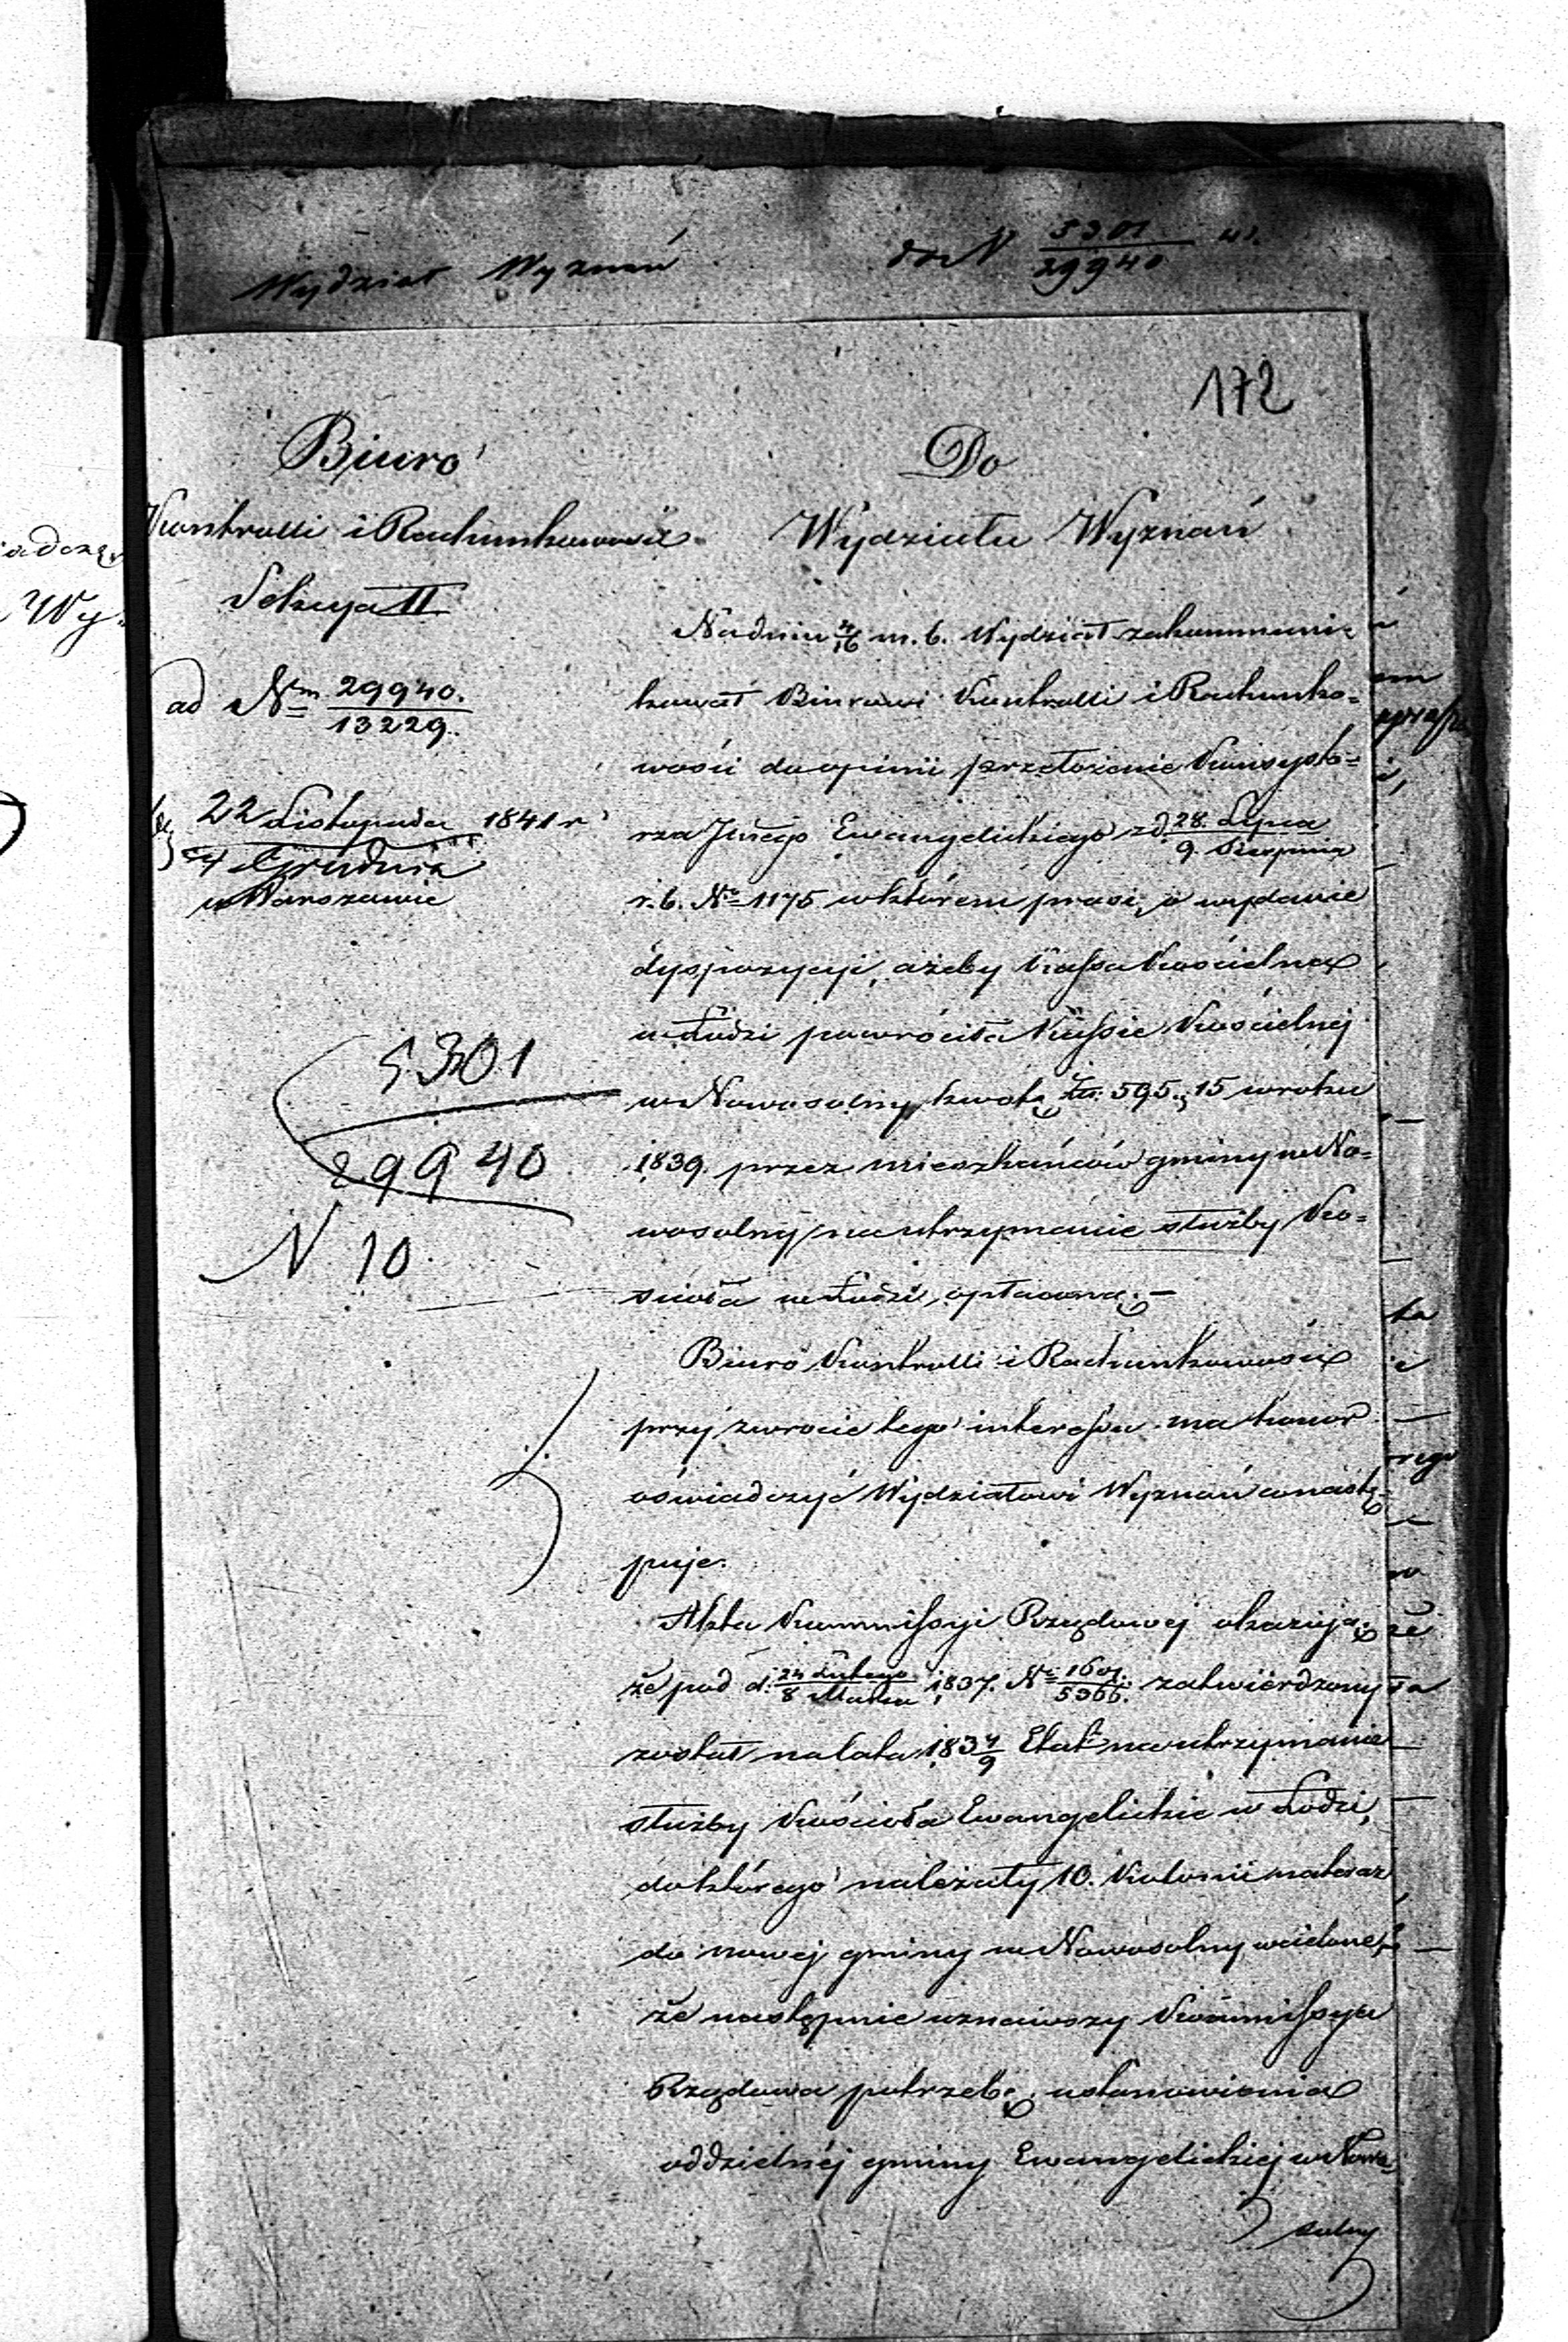 Wydział Wyznań
do N 5301/29940 41.
172
Biuro
Kontrolli i Rachunkowości
Sekcya II
ad Nrm 29940./13229.
22 Listopada/4 Grudnia 1841 r
w Warszawie
5301
29940
N 10.
Do
Wydziału Wyznań
Na dniu 4/16 m. b. Wydział zakommuni=
kował Biurowi Kontrolli i Rachunko=
wości do opinii przełożenie Konsysto=
rza Jlnego Ewangelickiego z d. 28. Lipca/9. Sierpnia
r. b. No 1175 w którem prosi, o wydanie
dyspozycyi, ażeby Kassa Kościelna
w Łodzi powróciła Kassie Kościelnej
w Nowosolny kwotę Złp. 595. 15 w roku
1839. przez mieszkańców gminy w No=
wosolny na utrzymanie służby Ko=
scioła w Łodzi, opłaconą. —
Biuro Kontrolli i Rachunkowości
przy zwrocie tego interessu ma honor
oświadczyć Wydziałowi Wyznań co nastę=
puje.
Akta Kommissyi Rządowej okazują,
że pod d. 24 Lutego/8 Marca 1837. No 1601./5366. zatwierdzony
został na lata 1837/9 Etat na utrzymanie
służby Kościoła Ewangelickie w Łodzi,
do którego należały 10. Kolonii na teraz
do nowej gminy w Nowosolny wcielone,
że następnie uznawszy Kommissya
Rządowa potrzebę, ustanowienia
oddzielnéj gminy Ewangelickiej w Nowo=
solny